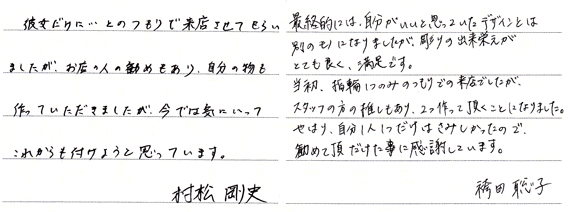 彼女だけに…とのつもりで来店させてもらい
ましたが、お店の人の勧めもあり、自分の物も
作っていただきましたが、今では気にいって
これからも付けようと思っています。
村松 剛史
最終的には、自分がいいと思っていたデザインとは
別のモノになりましたが、彫りの出来栄えが
とても良く、満足です。
当初、指輪1つのみのつもりでの来店でしたが、
スタッフの方の推しもあり、2つ作って頂くことになりました。
やはり、自分1人1つだけはさみしかったので、
勧めて頂だけた事に感謝しています。
袴田 聡子